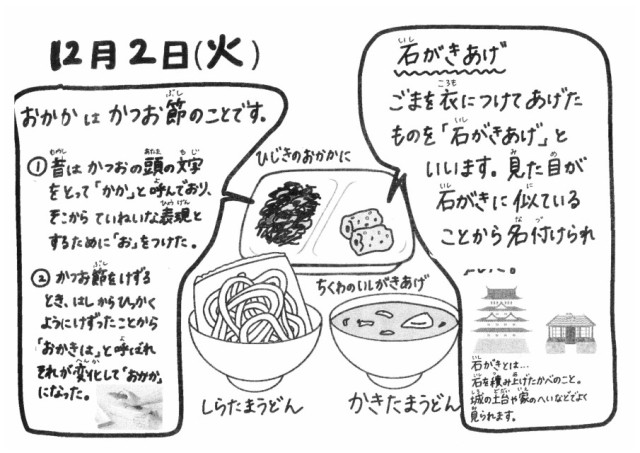 12月2日(火)
おかかは かつお節のことです。
ぶし
①昔は かつおの頭の文字
むかし あたま もじ
をとって「かか」と呼んでおり、
よ
そこから ていねいな表現と
ひょうげん
するために「お」をつけた。
② かつお節をけずる
ぶし
とき、はしから ひっかく
ようにけずったことから
「おかきは」と呼ばれ
よ
それが変化して「おかか」
へんか
になった。
ひじきのおかかに
ちくわのいしがきあげ
しらたまうどん
かきたまうどん
石がきあげ
いし
ごまを衣につけてあげた
ころも
ものを「石がきあげ」と
いし
いいます。見た目が
み め
石がきに似ている
いし に
ことから名付けられ
な づ
ました。
石がきとは…
いし
石を積み上げたかべのこと。
いし つ あ
城の土台や家のへいなどでよく
しろ どだい いえ
見られます。
み